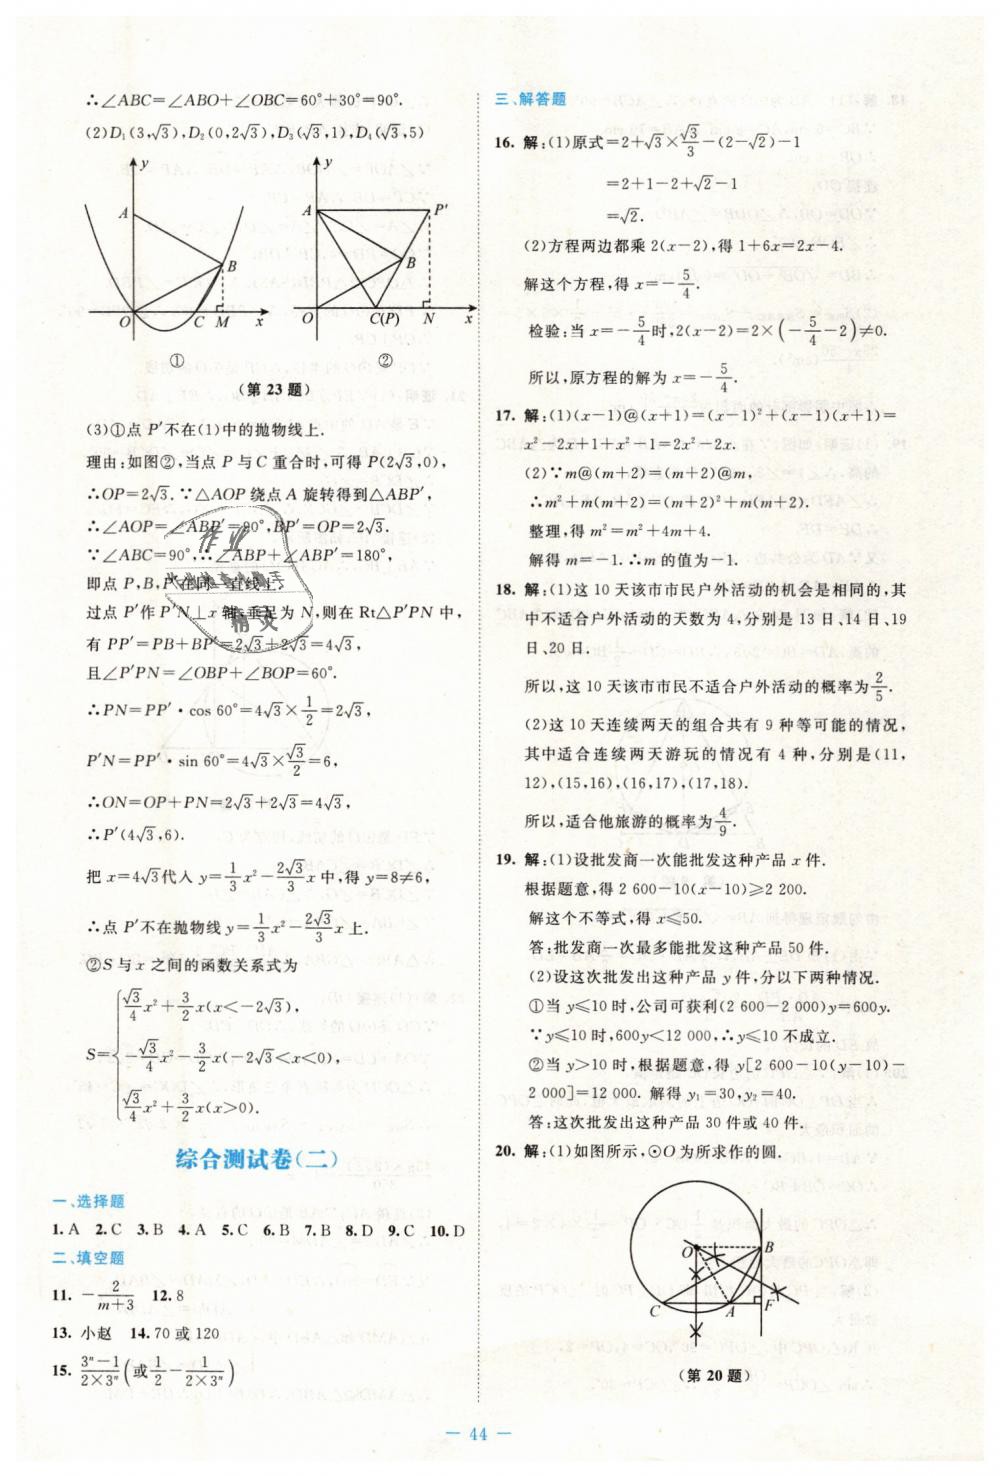 ∴∠ABC=∠ABO+∠OBC=60°+30°=90°.
(2)D₁(3,√3),D₂(0,2√3),D₃(√3,1),D₄(√3,5)
y
A
B
O
C
M
x
①
y
A
P′
B
O
C(P)
N
x
②
(第 23 题)
(3)①点 P′不在(1)中的抛物线上.
理由:如图②,当点 P 与 C 重合时,可得 P(2√3,0),
∴OP=2√3.∵△AOP 绕点 A 旋转得到△ABP′,
∴∠AOP=∠ABP′=90°,BP′=OP=2√3.
∵∠ABC=90°,∴∠ABP+∠ABP′=180°,
即点 P,B,P′在同一直线上.
过点 P′作 P′N⊥x 轴,垂足为 N,则在 Rt△P′PN 中,
有 PP′=PB+BP′=2√3+2√3=4√3,
且∠P′PN=∠OBP+∠BOP=60°.
∴PN=PP′·cos 60°=4√3×1/2=2√3,
P′N=PP′·sin 60°=4√3×√3/2=6,
∴ON=OP+PN=2√3+2√3=4√3,
∴P′(4√3,6).
把 x=4√3代入 y=1/3x²-2√3/3x 中,得 y=8≠6,
∴点 P′不在抛物线 y=1/3x²-2√3/3x 上.
②S 与 x 之间的函数关系式为
S={√3/4x²+3/2x(x<-2√3),
-√3/4x²-3/2x(-2√3<x<0),
√3/4x²+3/2x(x>0).
综合测试卷(二)
一、选择题
1.A 2.C 3.B 4.A 5.C 6.B 7.B 8.D 9.C 10.D
二、填空题
11. -2/(m+3) 12.8
13. 小赵 14.70 或 120
15. (3ⁿ-1)/(2×3ⁿ)(或1/2-1/(2×3ⁿ))
三、解答题
16. 解:(1)原式=2+√3×√3/3-(2-√2)-1
=2+1-2+√2-1
=√2.
(2)方程两边都乘 2(x-2),得 1+6x=2x-4.
解这个方程,得 x=-5/4.
检验:当 x=-5/4时,2(x-2)=2×(-5/4-2)≠0.
所以,原方程的解为 x=-5/4.
17. 解:(1)(x-1)@(x+1)=(x-1)²+(x-1)(x+1)=
x²-2x+1+x²-1=2x²-2x.
(2)∵m@(m+2)=(m+2)@m,
∴m²+m(m+2)=(m+2)²+m(m+2).
整理,得 m²=m²+4m+4.
解得 m=-1.∴m 的值为-1.
18. 解:(1)这 10 天该市市民户外活动的机会是相同的,其
中不适合户外活动的天数为 4,分别是 13 日、14 日、19
日、20 日.
所以,这 10 天该市市民不适合户外活动的概率为2/5.
(2)这 10 天连续两天的组合共有 9 种等可能的情况,
其中适合连续两天游玩的情况有 4 种,分别是(11,
12),(15,16),(16,17),(17,18).
所以,适合他旅游的概率为4/9.
19. 解:(1)设批发商一次能批发这种产品 x 件.
根据题意,得 2 600-10(x-10)≥2 200.
解这个不等式,得 x≤50.
答:批发商一次最多能批发这种产品 50 件.
(2)设这次批发出这种产品 y 件,分以下两种情况.
①当 y≤10 时,公司可获利(2 600-2 000)y=600y.
∵y≤10 时,600y<12 000,∴y≤10 不成立.
②当 y>10 时,根据题意,得 y[2 600-10(y-10)-
2 000]=12 000. 解得 y₁=30,y₂=40.
答:这次批发出这种产品 30 件或 40 件.
20. 解:(1)如图所示,⊙O 为所求作的圆.
O
B
C
A
F
(第 20 题)
44